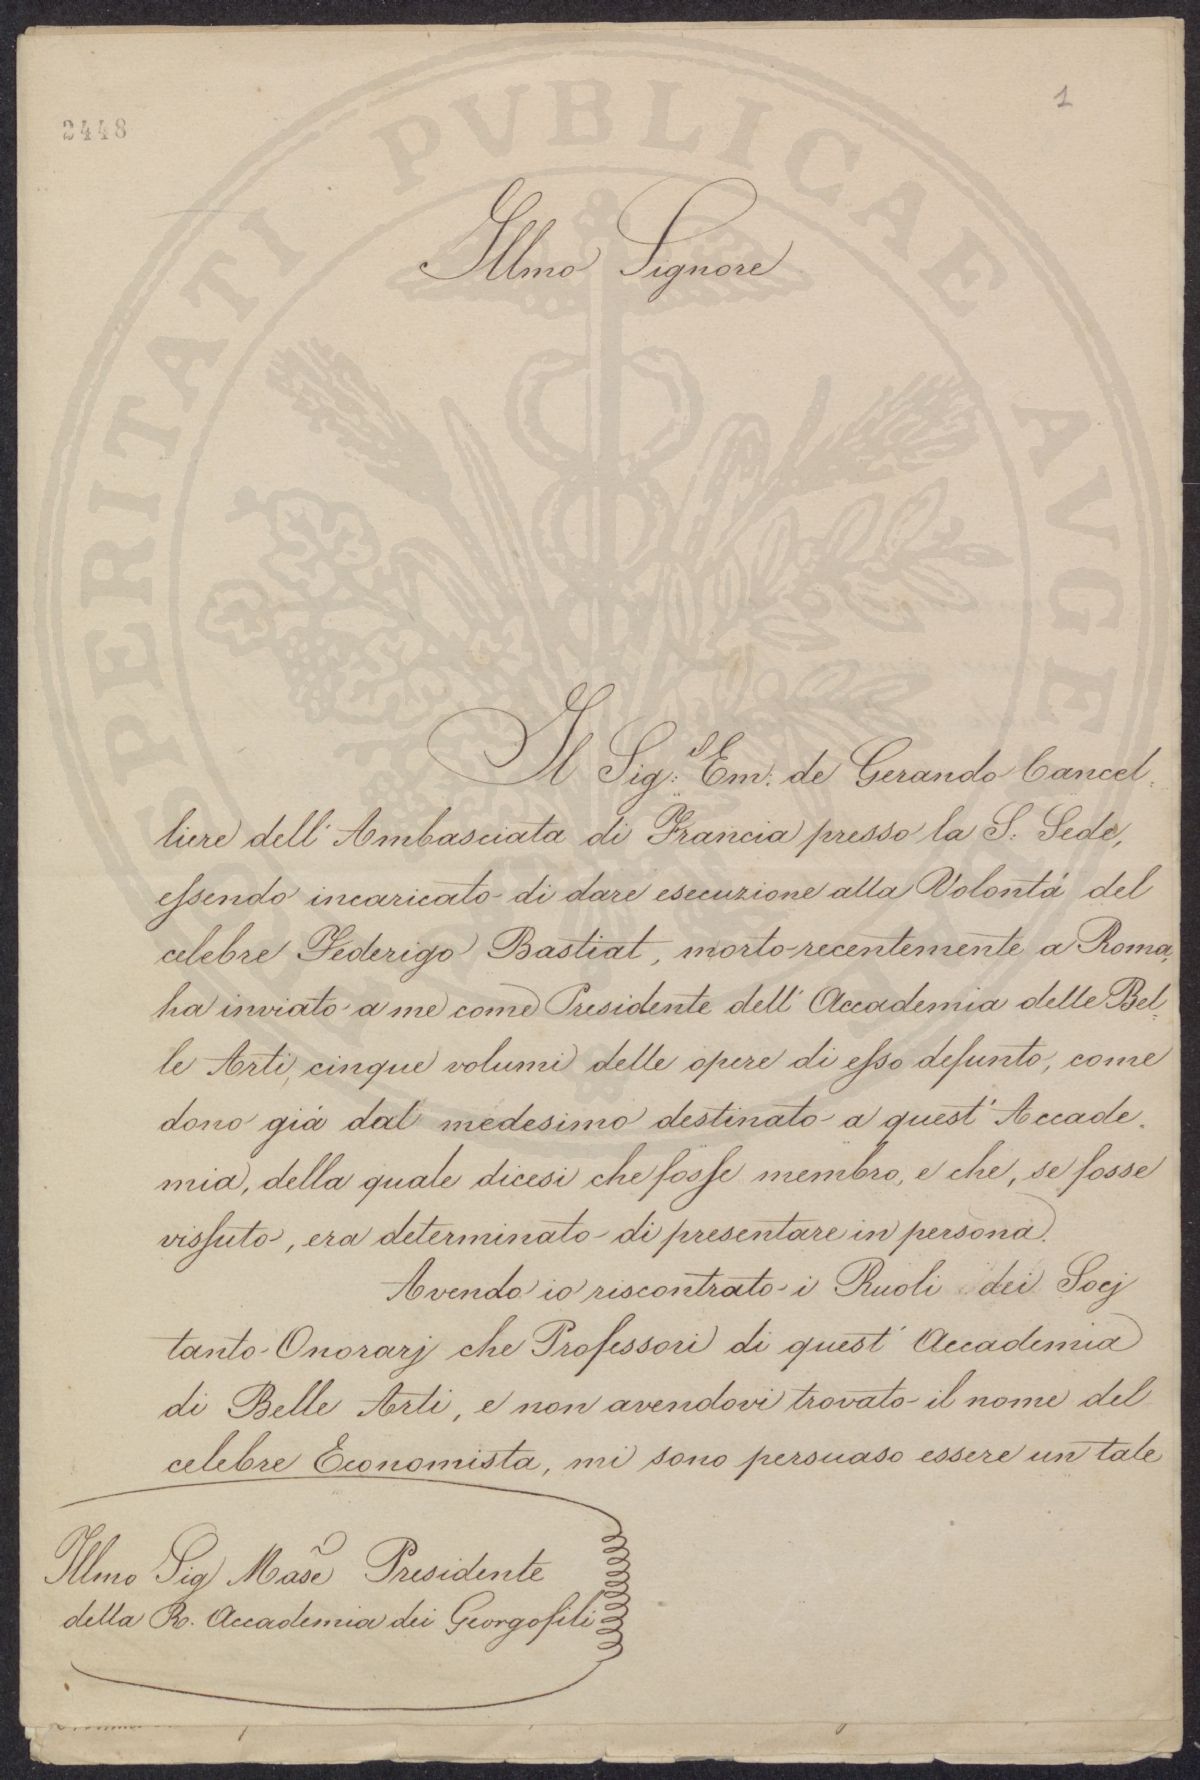 2448
1
Illmo Signore
Il Sig: Em: de Gerando Cancel-
liere dell'Ambasciata di Francia presso la S: Sede,
essendo incaricato di dare esecuzione alla Volontà del
celebre Federigo Bastiat, morto recentemente a Roma,
ha inviato a me come Presidente dell'Accademia delle Bel-
le Arti, cinque volumi delle opere di esso defunto, come
dono già dal medesimo destinato a quest'Accade-
mia, della quale dicesi che fosse membro, e che, se fosse
vissuto, era determinato di presentare in persona.
Avendo io riscontrato i Ruoli dei Socj
tanto Onorarj che Professori di quest'Accademia
di Belle Arti, e non avendovi trovato il nome del
celebre Economista, mi sono persuaso essere un tale
Illmo Sig Presidente
della R. Accademia dei Georgofili
PERITATI PVBLICAE AVGE